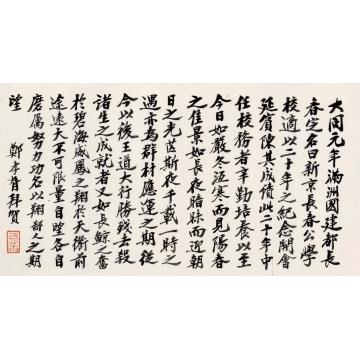 大同元年滿洲國建都長
春定名曰新京長春公學
校適以二十年之紀念開會
延賓陳其成績此二十年中
任校務者辛勤培養以至
今日如嚴冬沍寒而見陽春
之佳景如長夜暗昧而迎朝
日之光茲斯夜千載一時之
遇亦為群材應運之期從
今以後王道大行勝殘去殺
諸生之成就者又如長鯨之奮
於碧海威鳳之翔於天衢前
途遠大不可限量自望各自
磨厲努力功名以翔 都人之期
望
鄭孝胥拜賀